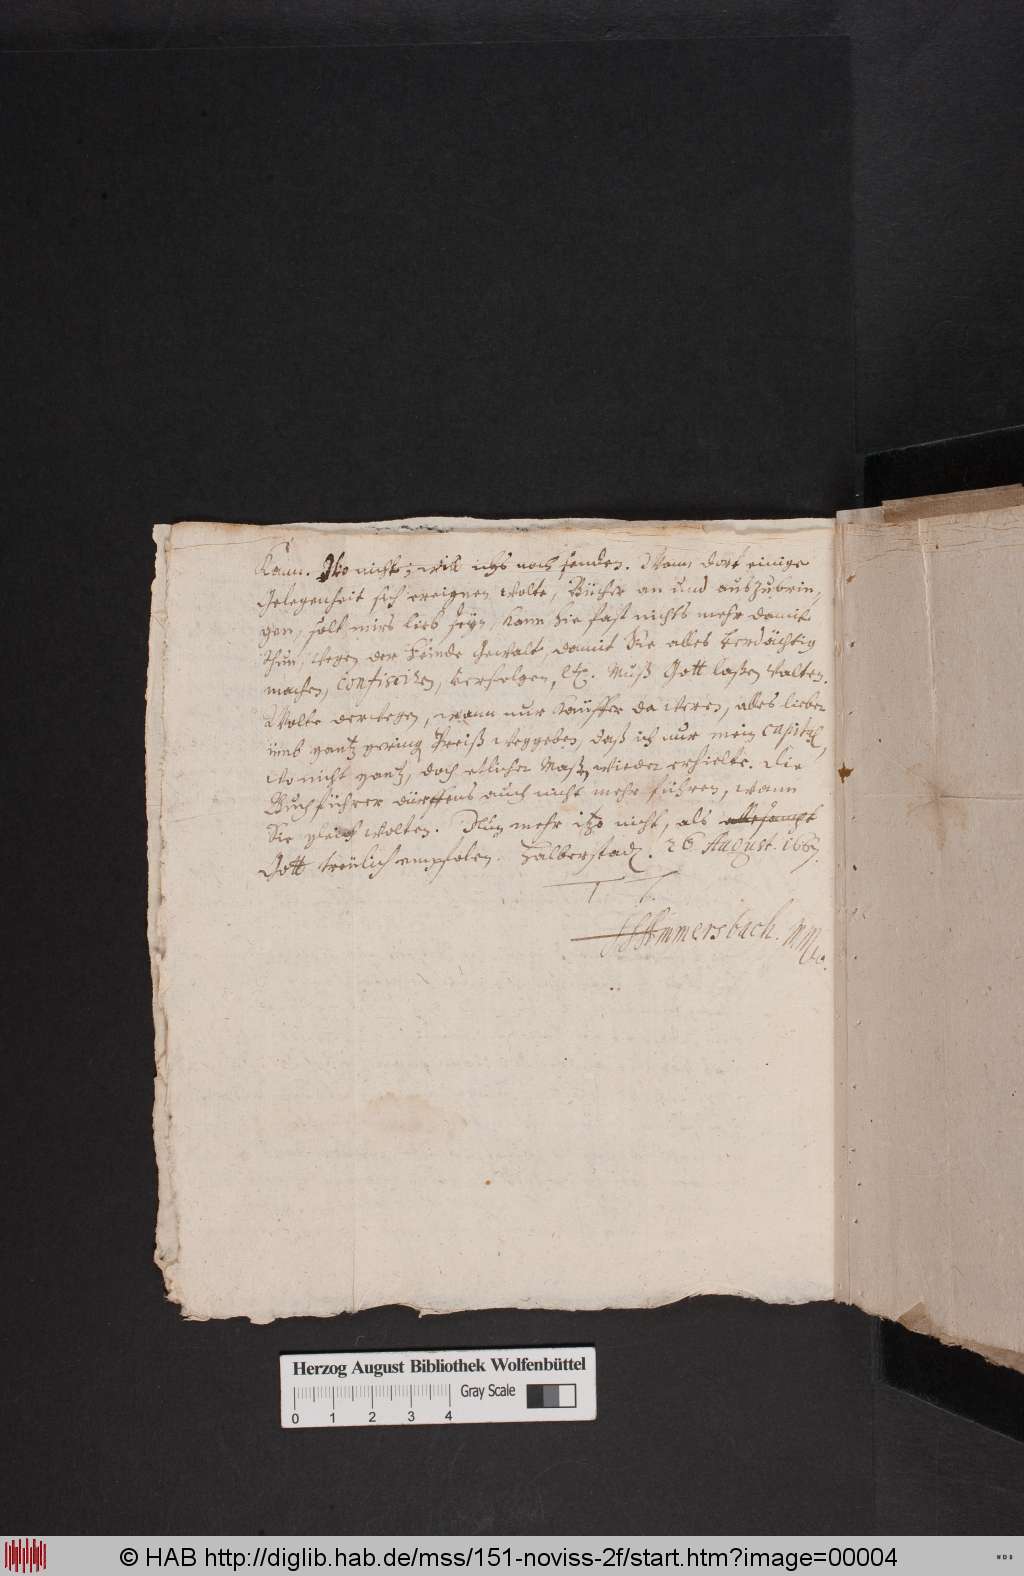 Kann. Wo nicht; will ichs noch senden. Wann dort einige
Gelegenheit sich ereignen wolte, Bücher an und auszubrin,
gen, solt mirs lieb seÿn, kann hie fast nichts mehr damit
thun, wegen der Feinde Gewalt, damit Sie alles verdächtig
machen, confisciren, verfolgen, etc. Muß Gott laßen walten.
Wolte derwegen, wann nur Käuffer da weren, alles lieber
umb gantz gering Preiß weggeben, daß ich nur mein capital,
wo nicht gantz, doch etlicher Maß wieder erhielte. Die
Buchführer dürffens auch nicht mehr führen, wann
Sie gleich wolten. Nun mehr itzo nicht, als allesampt
Gott treülich empfolen. Halberstad. 26 August. 166
Ammersbach.
Herzog August Bibliothek Wolfenbüttel
Gray Scale
0 1 2 3 4
© HAB http://diglib.hab.de/mss/151-noviss-2f/start.htm?image=00004